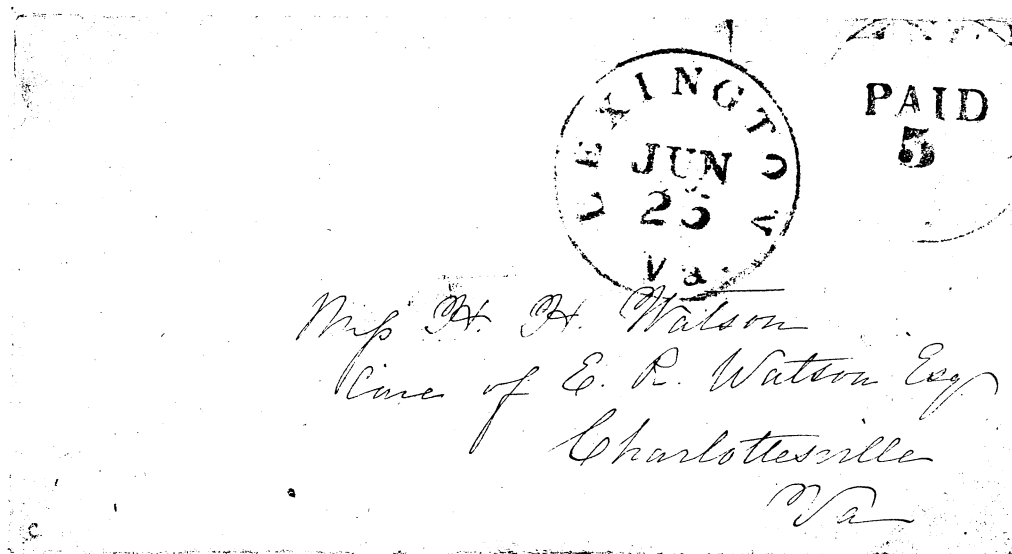 LEXINGTON
JUN
25
Va.
PAID
5
Miss H. H. Watson
Care of E. R. Watson Esq
Charlottesville
Va
C